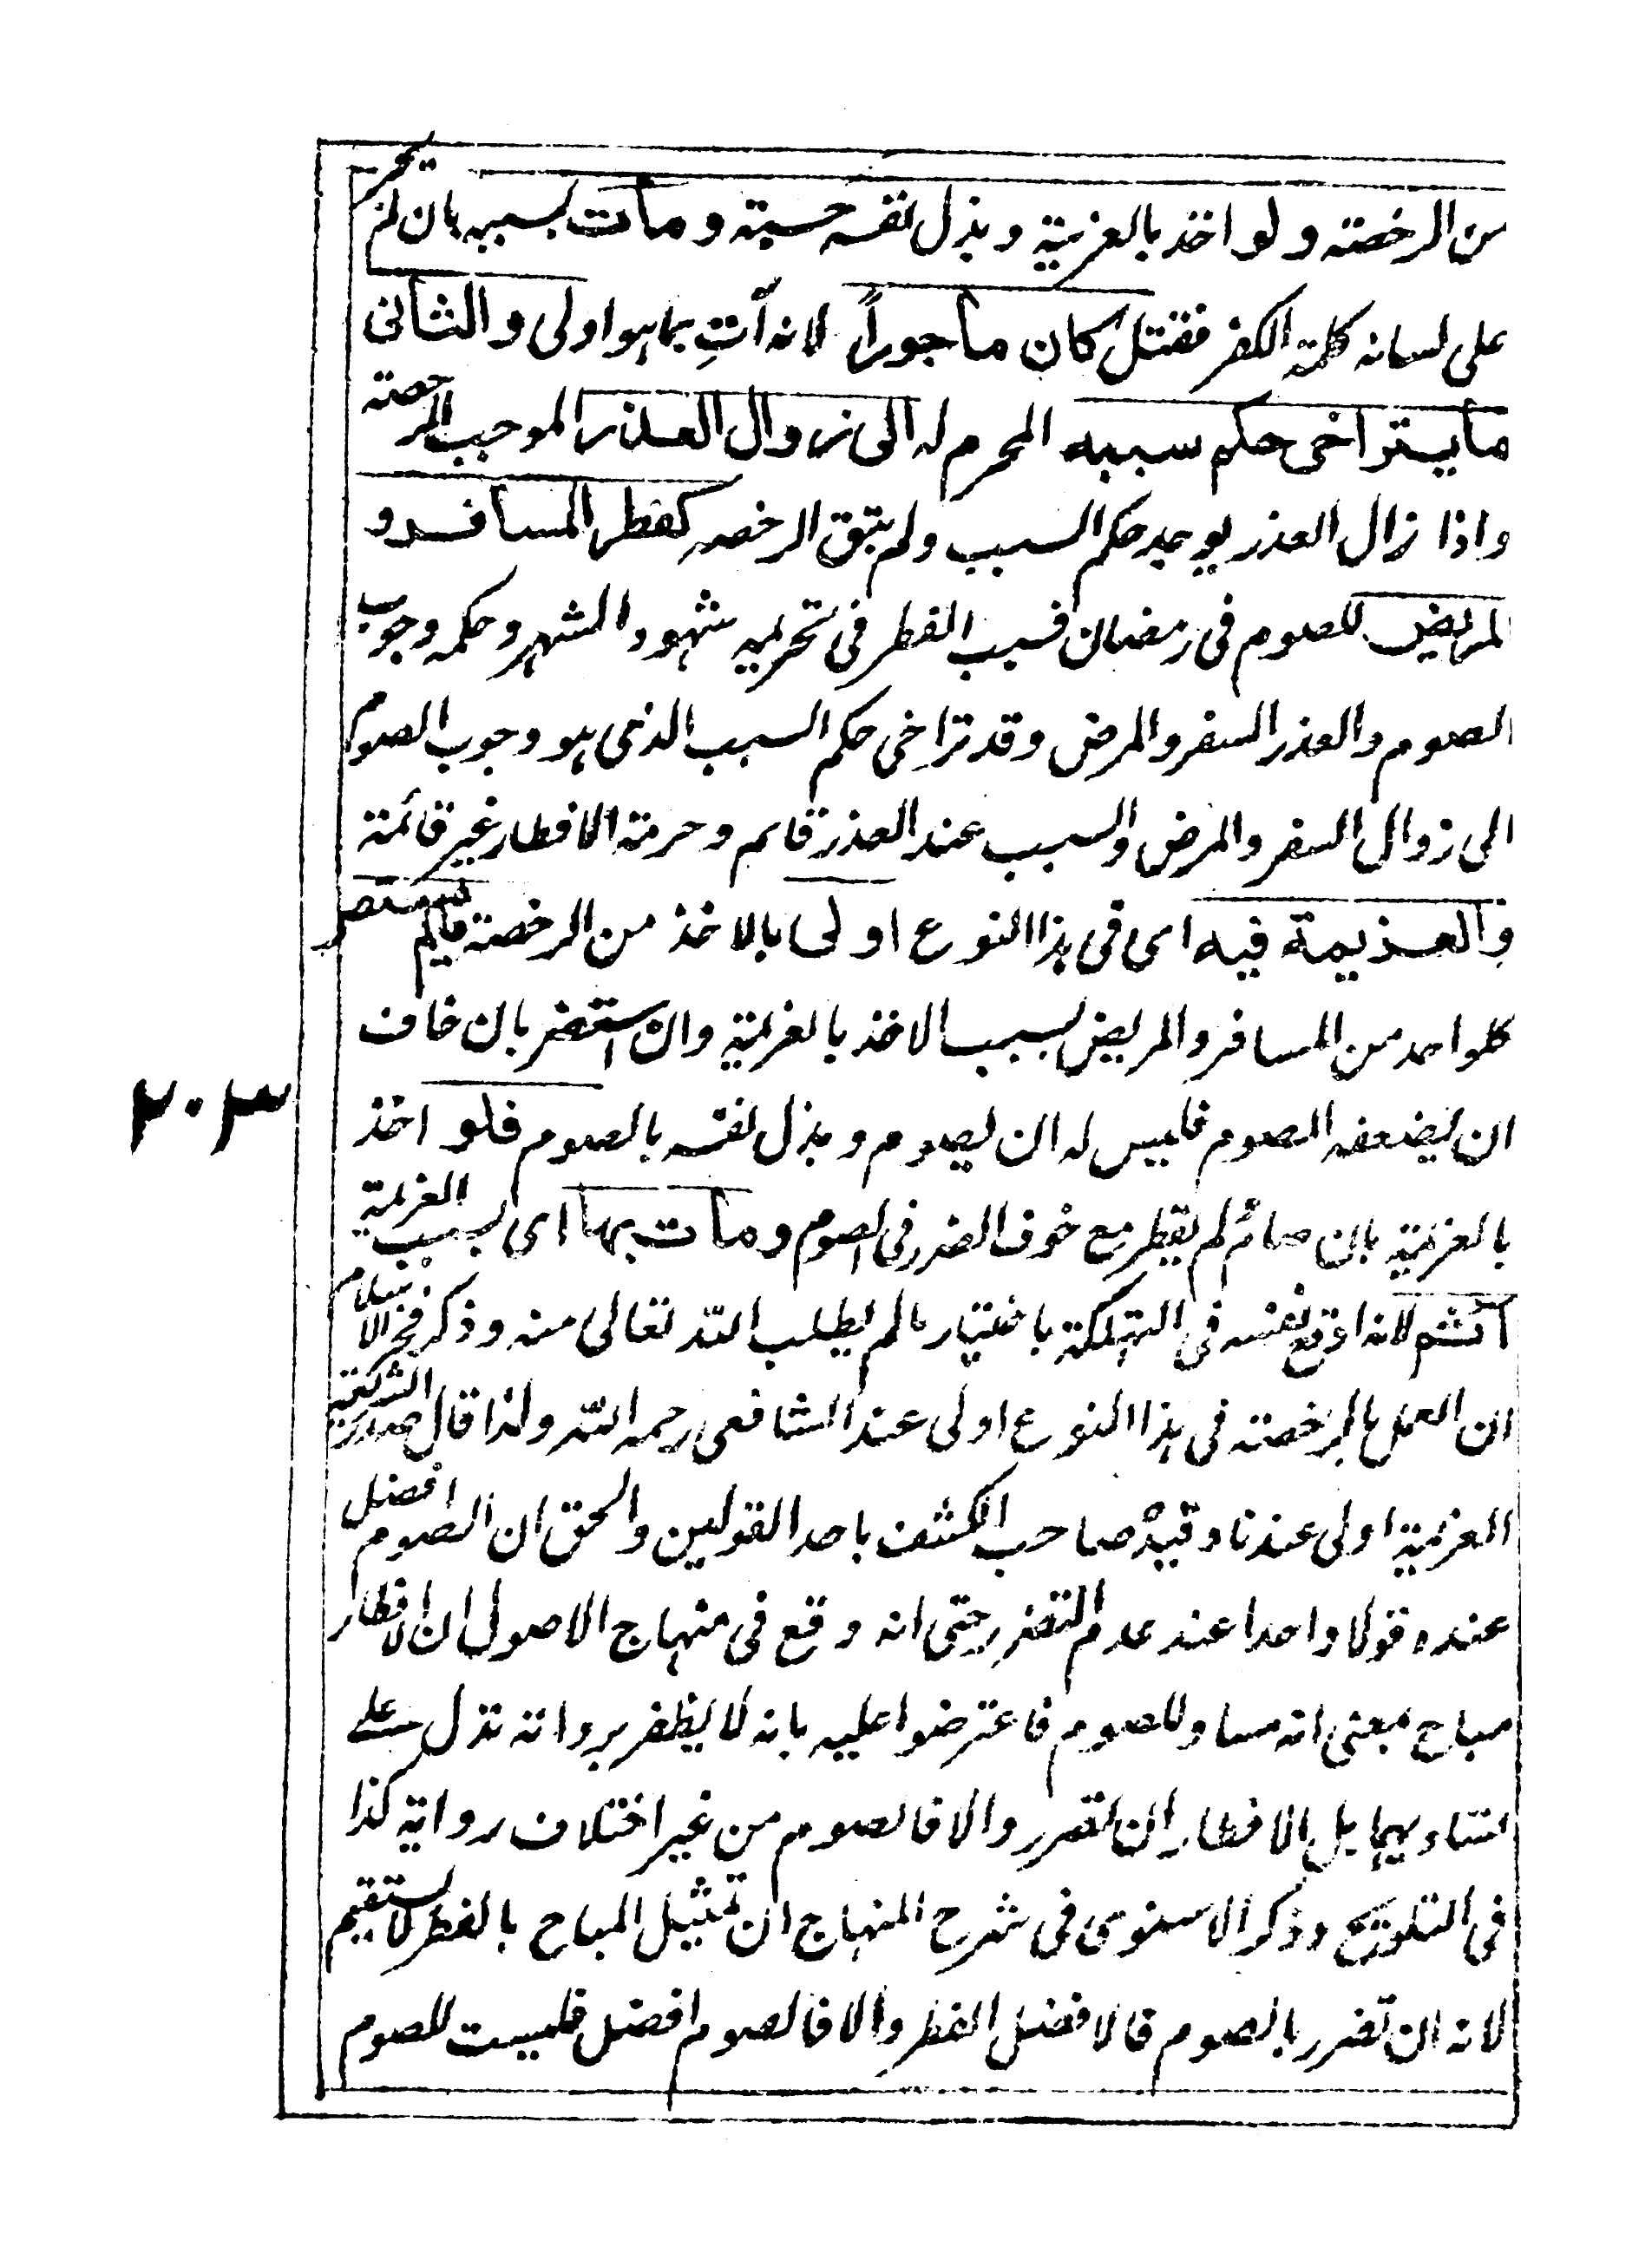 من الرخصة ولو اخذ بالعزيمة وبذل نفسه حسبة ومات بسببه بان لم يجر
على لسانه كلمة الكفر فقتل كان مأجوراً لانه آتٍ بما هو اولى والثانى
ما يتراخى حكم سببه المحرم له الى زوال العذر الموجب للرخصة
واذا زال العذر يوجد حكم السبب ولم تبق الرخصة كفطر المسافر و
المريض للصوم فى رمضان فسبب الفطر فى تحريمه شهود الشهر وحكمه وجوب
الصوم والعذر السفر والمرض وقد تراخى حكم السبب الذى هو وجوب الصوم
الى زوال السفر والمرض والسبب عند العذر قائم وحرمة الافطار غير قائمة
والعزيمة فيه اى فى هذا النوع اولى بالاخذ من الرخصة مالم يستضر
كلواحد من المسافر والمريض بسبب الاخذ بالعزيمة وان استضر بان خاف
٢٠٣
ان يضعفه الصوم فليس له ان يصوم وبذل نفسه بالصوم فلو اخذ
بالعزيمة بان صائم لم يفطر مع خوف الضرر فى الصوم ومات بها اى بسبب العزيمة
آثم لانه اوقع نفسه فى التهلكة باختيار مالم يطلب الله تعالى منه وذكر فخر الاسلام
ان العمل بالرخصة فى هذا النوع اولى عند الشافعى رحمه الله ولذا قال صدر الشريعة
العزيمة اولى عندنا وقيده صاحب الكشف باحد القولين والحق ان الصوم افضل
عنده قولا واحدا عند عدم التضرر حتى انه وقع فى منهاج الاصول ان الافطار
مباح بمعنى انه مساو للصوم فاعترضوا عليه بانه لا يظفر برواية تدل على
تساويهما بل الافطار ان تضرر والا فالصوم من غير اختلاف رواية كذا
فى التلويح وذكر الاسنوى فى شرح المنهاج ان تمثيل المباح بالفطر لا يستقيم
لانه ان تضرر بالصوم فالافضل الفطر والا فالصوم افضل فليست للصوم